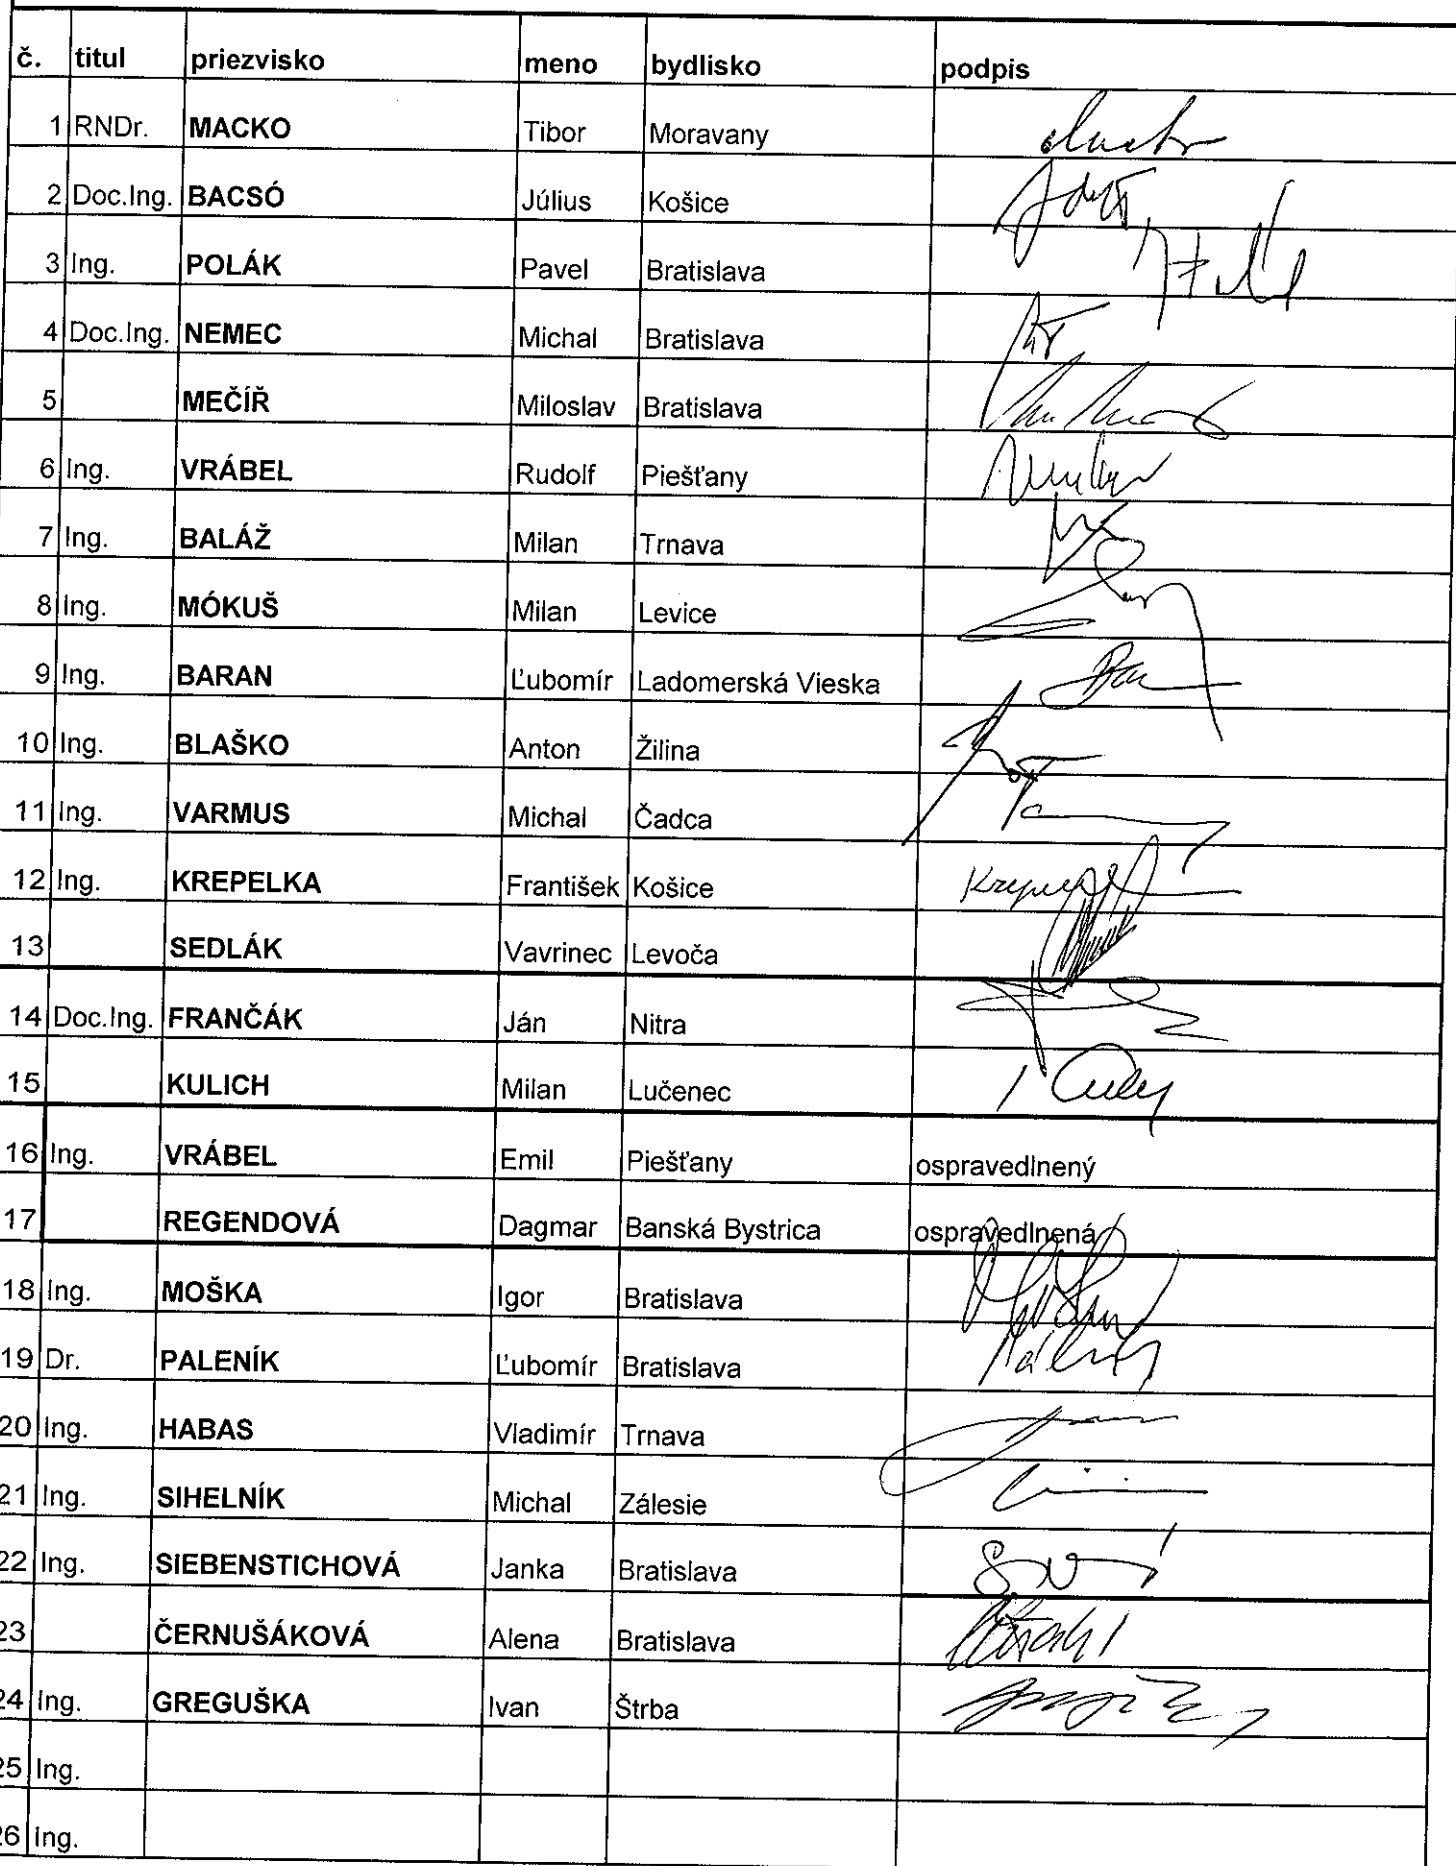 č. titul priezvisko meno bydlisko podpis
1 RNDr. MACKO Tibor Moravany
2 Doc.Ing. BACSÓ Július Košice
3 Ing. POLÁK Pavel Bratislava
4 Doc.Ing. NEMEC Michal Bratislava
5 MEČÍŘ Miloslav Bratislava
6 Ing. VRÁBEL Rudolf Piešťany
7 Ing. BALÁŽ Milan Trnava
8 Ing. MÓKUŠ Milan Levice
9 Ing. BARAN Ľubomír Ladomerská Vieska
10 Ing. BLAŠKO Anton Žilina
11 Ing. VARMUS Michal Čadca
12 Ing. KREPELKA František Košice
13 SEDLÁK Vavrinec Levoča
14 Doc.Ing. FRANČÁK Ján Nitra
15 KULICH Milan Lučenec
16 Ing. VRÁBEL Emil Piešťany ospravedlnený
17 REGENDOVÁ Dagmar Banská Bystrica ospravedlnená
18 Ing. MOŠKA Igor Bratislava
19 Dr. PALENÍK Ľubomír Bratislava
20 Ing. HABAS Vladimír Trnava
21 Ing. SIHELNÍK Michal Zálesie
22 Ing. SIEBENSTICHOVÁ Janka Bratislava
23 ČERNUŠÁKOVÁ Alena Bratislava
24 Ing. GREGUŠKA Ivan Štrba
25 Ing.
26 Ing.